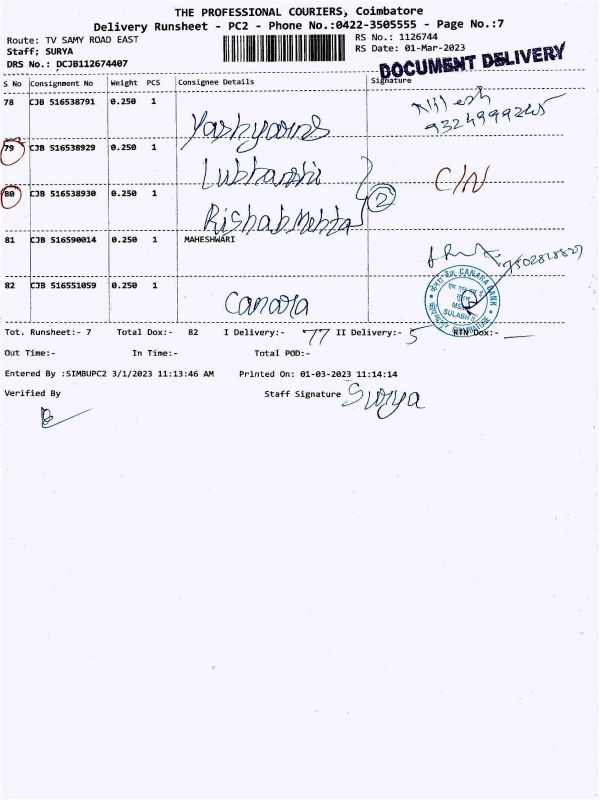 THE PROFESSIONAL COURIERS, Coimbatore
Delivery Runsheet - PC2 - Phone No.:0422-3505555 - Page No.:7
Route: TV SAMY ROAD EAST
RS No.: 1126744
Staff; SURYA
RS Date: 01-Mar-2023
DRS No.: DCJB112674407
DOCUMENT DELIVERY
S No Consignment No Weight PCS Consignee Details Signature
78 CJB 516538791 0.250 1 Yashyarns Nilesh
9324999245
79 CJB 516538929 0.250 1 Lubhanshi C/N
80 CJB 516538930 0.250 1 Rishab Mehta 2
81 CJB 516590014 0.250 1 MAHESHWARI
82 CJB 516551059 0.250 1 Canara
CANARA BANK
SULABH
COIMBATORE
Tot. Runsheet:- 7 Total Dox:- 82 I Delivery:- 77 II Delivery:- 5 RTN Dox:- —
Out Time:- In Time:- Total POD:-
Entered By :SIMBUPC2 3/1/2023 11:13:46 AM Printed On: 01-03-2023 11:14:14
Verified By Staff Signature Surya